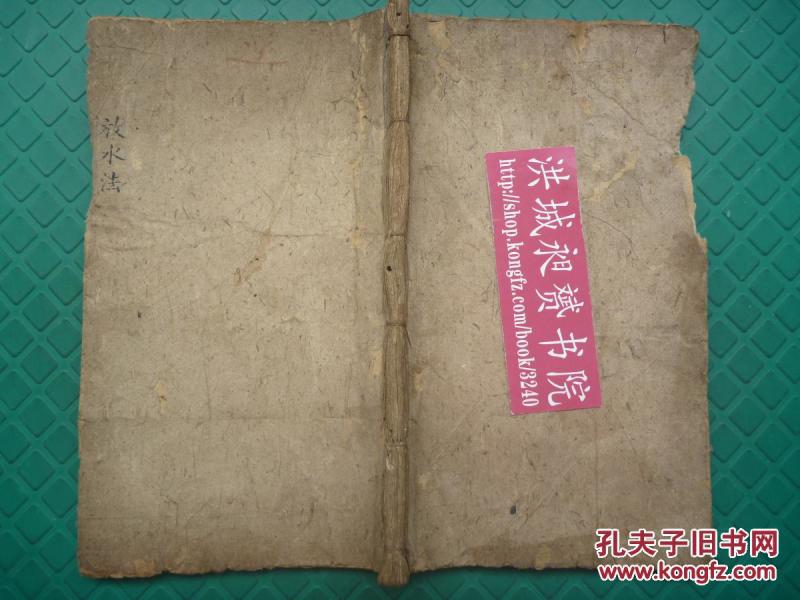 放水法
洪城昶赟书院
http://shop.kongfz.com/book/3240
孔夫子旧书网
www.kongfz.com